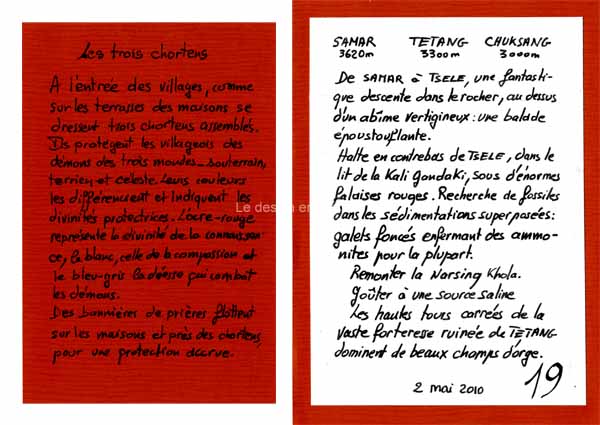 Les trois chortens
A l'entrée des villages, comme
sur les terrasses des maisons se
dressent trois chortens assemblés.
Ils protègent les villageois des
démons des trois mondes_souterrain,
terrien et céleste. Leurs couleurs
les différencient et indiquent les
divinités protectrices. L'ocre-rouge
représente la divinité de la connaissan-
ce, le blanc, celle de la compassion et
le bleu-gris la déesse qui combat
les démons.
Des bannières de prières flottent
sur les maisons et près des chortens,
pour une protection accrue.
Le design en
SAMAR TETANG CHUKSANG
3620m 3300m 3000m
De SAMAR à TSELE, une fantasti-
que descente dans le rocher, au dessus
d'un abîme vertigineux : une balade
époustouflante.
Halte en contrebas de TSELE, dans le
lit de la Kali Gandaki, sous d'énormes
falaises rouges. Recherche de fossiles
dans les sédimentations superposées:
galets foncés enfermant des ammo-
nites pour la plupart.
Remonter la Narsing Khola.
Goûter à une source saline
Les hautes tours carrées de la
vaste forteresse ruinée de TETANG
dominent de beaux champs d'orge.
2 mai 2010
19